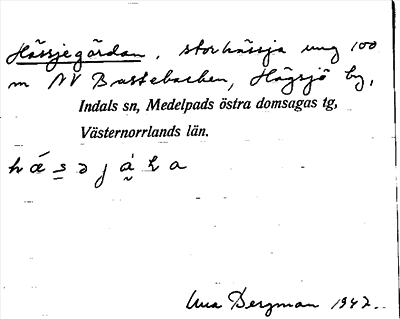 Hässjegårdan, storhässja ung 100
m NV Bastebacken, Högsjö by,
Indals sn, Medelpads östra domsagas tg,
Västernorrlands län.
Bergman 1947.